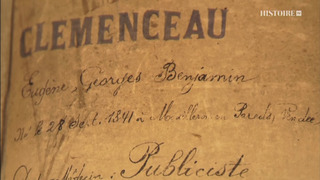 HISTOIRE
CLEMENCEAU
Eugène Georges Benjamin
Né le 28 Sept. 1841 à Mouilleron en Pareds, Vendée
Publiciste